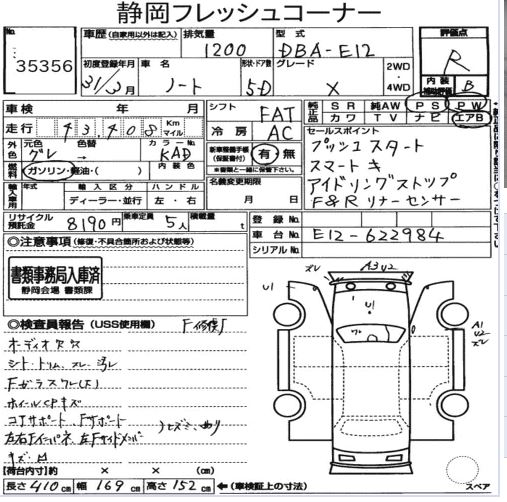 静岡フレッシュコーナー
No.
35356
車歴 (自家用以外は記入)
排気量
1200
型式
DBA-E12
評価点
R
内装
補助評価
B
初度登録年月
31/3月
車名
ノート
形状・ドア数
5D
グレード
X
2WD
4WD
車検 年 月
シフト
FAT
純正品
SR 純AW PS PW
カワ TV ナビ エアB
走行
43,408
Km
マイル
冷房
AC
セールスポイント
プッシュスタート
スマートキ
アイドリングストップ
F&Rソナーセンサー
外色
元色
グレ
色替
カラーNo.
KAD
新車整備手帳
(保証書付)
有・無
燃料
ガソリン・軽油・( )
内装色
名義変更期限
月 日
輸入車用
年式
輸入区分
ディーラー・並行
ハンドル
左・右
リサイクル
預託金
8190円
乗車定員
5人
積載量
t
登録No.
車台No.
E12-622984
シリアルNo.
◎注意事項 (修復・不具合箇所および状態等)
書類事務局入庫済
静岡会場 書類課
◎検査員報告 (USS使用欄)
F修復
オーディオ欠品
シート、トリム、スレ、汚レ
Fガラスワレ(大)
ホイールCPキズ
コアサポート Fサポート
左右Fインパネ 左Fサイドメンバー
ヒズミ、曲り
キズ・凹
【荷台内寸】約 × × (cm)
長さ 410cm 幅 169cm 高さ 152cm ←(車検証上の寸法)
スレ
A3 U2
U1
U1
ワレ
A1
U2
スレ
スペア